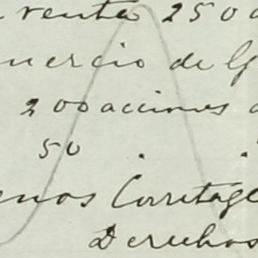 venta 250
mercio de G
200 acciones
50 .
enos Corretage
Derechos